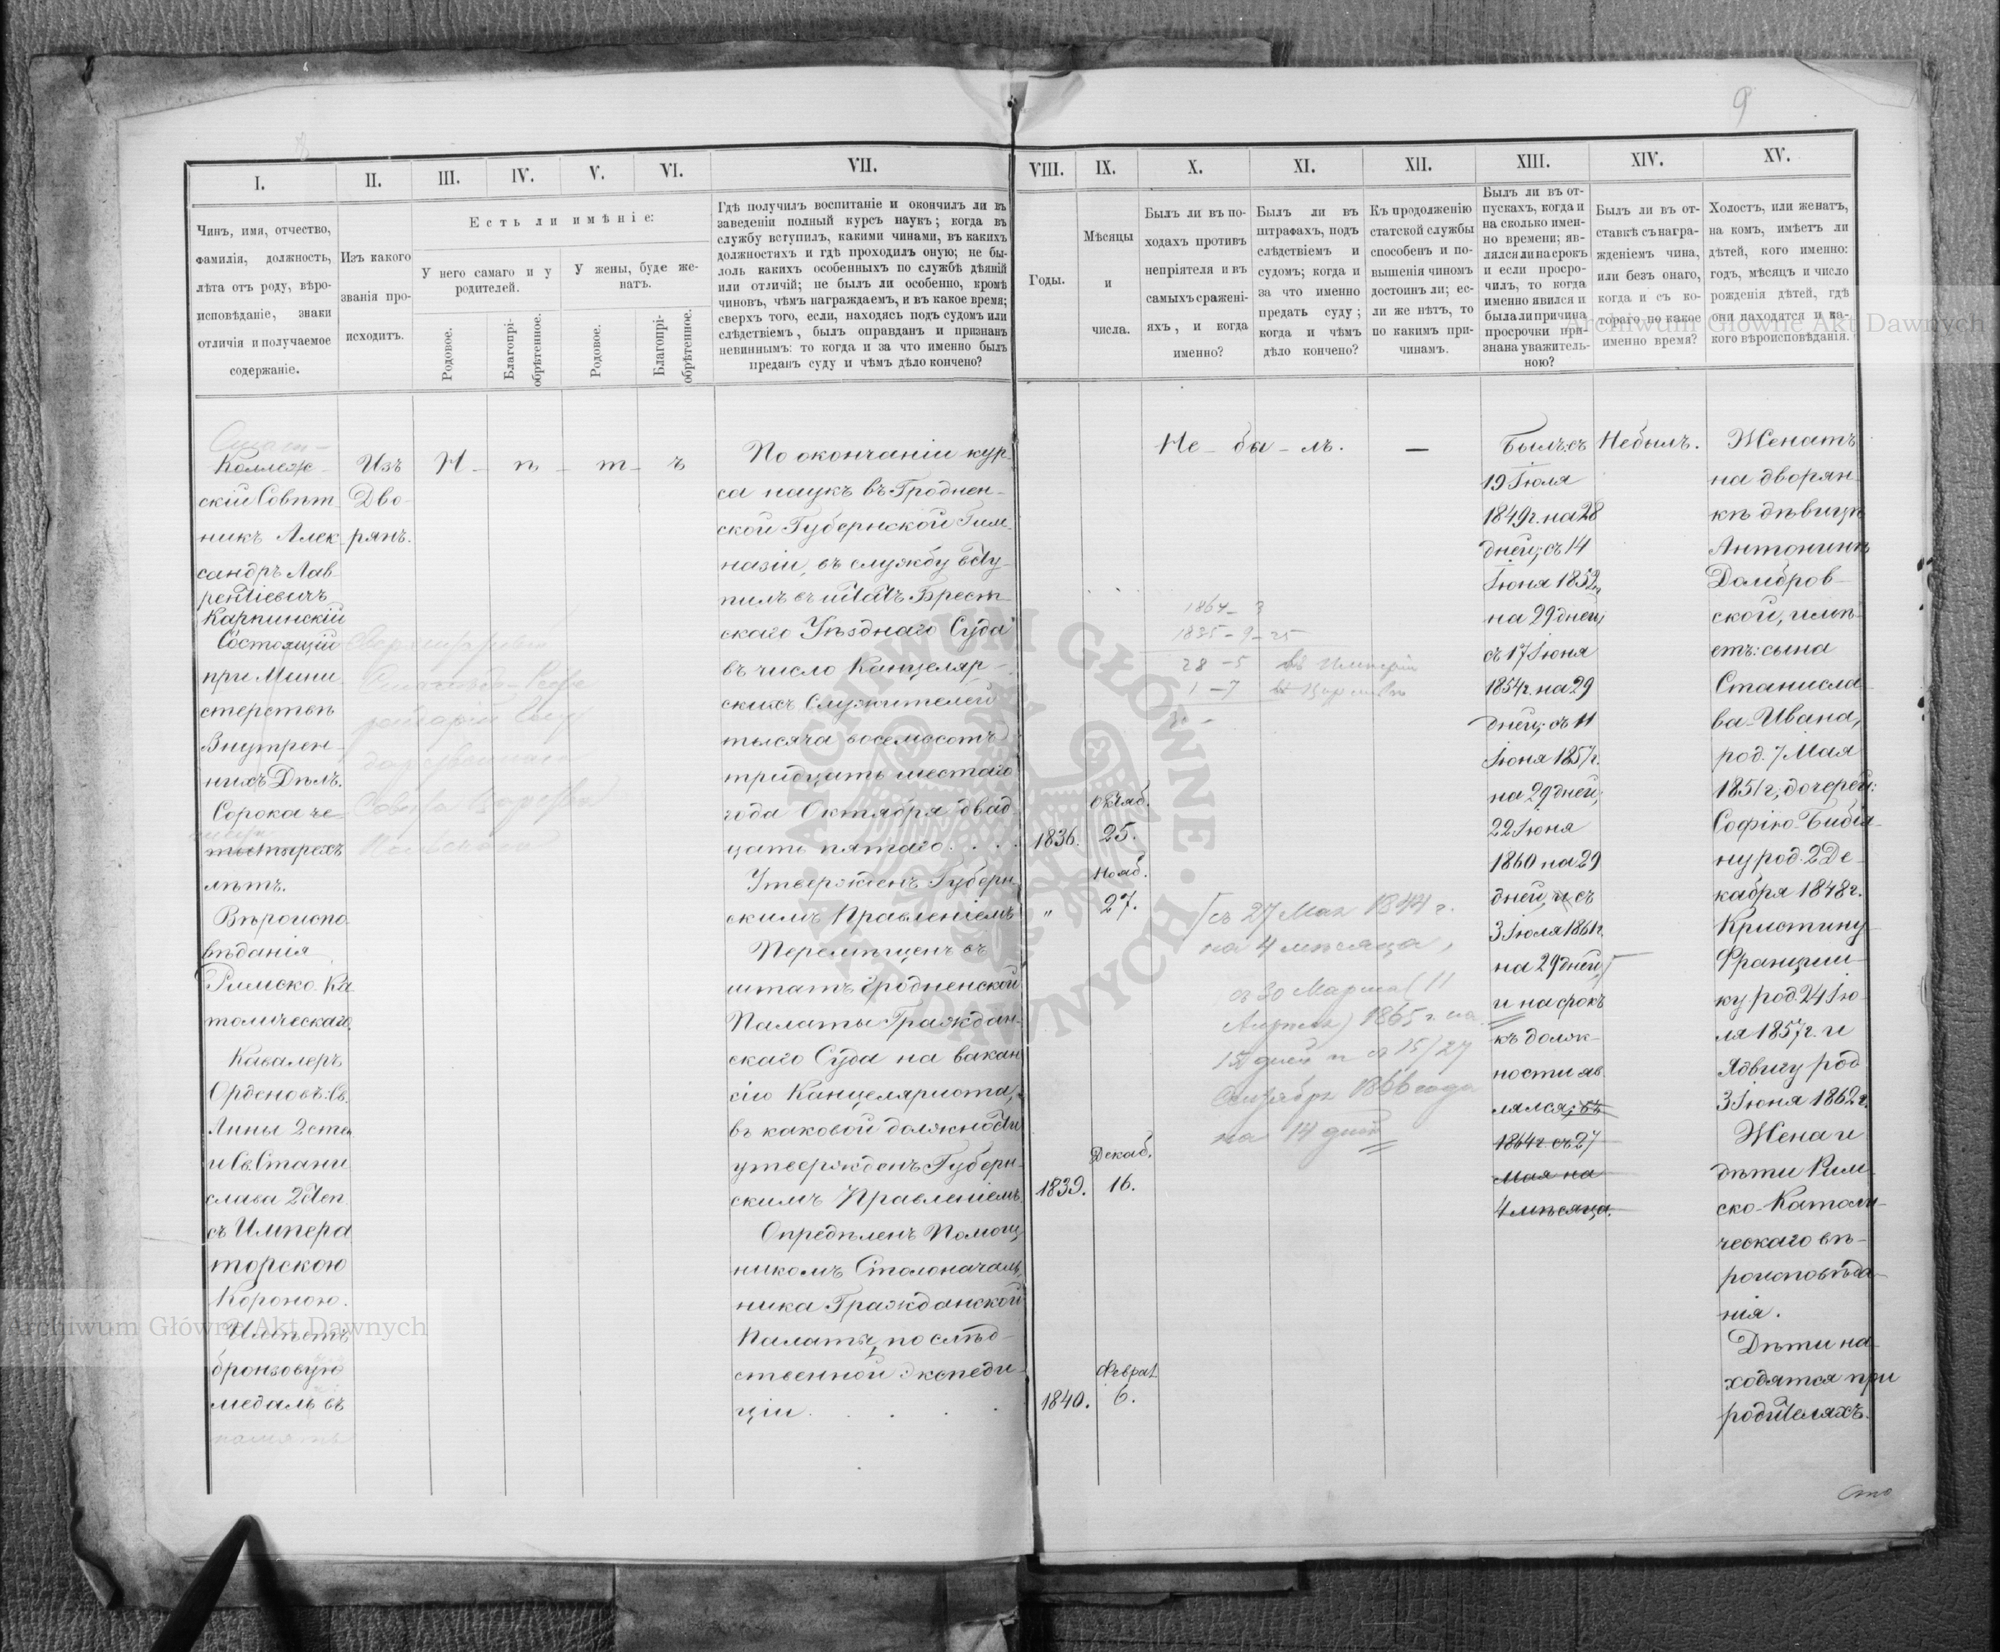 9
I.
II.
III.
IV.
V.
VI.
VII.
VIII.
IX.
X.
XI.
XII.
XIII.
XIV.
XV.
Чинъ, имя, отчество,
фамилія, должность,
лѣта отъ роду, вѣро-
исповѣданіе, знаки
отличія и получаемое
содержаніе.
Изъ какого
званія про-
исходитъ.
Есть ли имѣніе:
У него самаго и у
родителей.
У жены, буде же-
натъ.
Родовое.
Благопрі-
обрѣтенное.
Родовое.
Благопрі-
обрѣтенное.
Гдѣ получилъ воспитаніе и окончилъ ли въ
заведеніи полный курсъ наукъ; когда въ
службу вступилъ, какими чинами, въ какихъ
должностяхъ и гдѣ проходилъ оную; не бы-
лоль какихъ особенныхъ по службѣ дѣяній
или отличій; не былъ ли особенно, кромѣ
чиновъ, чѣмъ награждаемъ, и въ какое время;
сверхъ того, если, находясь подъ судомъ или
слѣдствіемъ, былъ оправданъ и признанъ
невиннымъ: то когда и за что именно былъ
преданъ суду и чѣмъ дѣло кончено?
Годы.
Мѣсяцы
и
числа.
Былъ ли въ по-
ходахъ противъ
непріятеля и въ
самыхъ сражені-
яхъ, и когда
именно?
Былъ ли въ
штрафахъ, подъ
слѣдствіемъ и
судомъ; когда и
за что именно
преданъ суду;
когда и чѣмъ
дѣло кончено?
Къ продолженію
статской службы
способенъ и по-
вышенія чиномъ
достоинъ ли; ес-
ли же нѣтъ, то
по какимъ при-
чинамъ.
Былъ ли въ от-
пускахъ, когда и
на сколько имен-
но времени; яв-
лялся ли на срокъ
и если просро-
чилъ, то когда
именно явился и
была ли причина
просрочки при-
знана уважитель-
ною?
Былъ ли въ от-
ставкѣ съ награ-
жденіемъ чина,
или безъ онаго,
когда и съ ко-
тораго по какое
именно время?
Холостъ, или женатъ,
на комъ, имѣетъ ли
дѣтей, кого именно:
годъ, мѣсяцъ и число
рожденія дѣтей, гдѣ
они находятся и ка-
кого вѣроисповѣданія.
Коллеж-
скій Совѣт
никъ Алек
сандръ Лав-
рентіевичъ
Карпинскій
Состоящій
при Мини
стерствѣ
Внутрен-
нихъ Дѣлъ.
Сорока че-
тырехъ
лѣтъ.
Вѣроиспо
вѣданія
Римско Ка
толическаго.
Кавалеръ
Орденовъ: Св.
Анны 2 степ
и Св. Стани
слава 2 степ.
съ Импера
торскою
Короною.
Имѣетъ
бронзовую
медаль въ
память
Изъ
Дво-
рянъ.
Н - ѣ - т - ъ
По окончаніи кур-
са наукъ въ Гроднен-
ской Губернской Гим
назіи, въ службу всту-
пилъ въ штатъ Брест-
скаго Уѣзднаго Суда
въ число Канцеляр-
скихъ Служителей
тысяча восемьсотъ
тридцать шестаго
года Октября двад
цать пятаго. . . .
Утвержденъ Губерн
скимъ Правленіемъ
Перемѣщенъ въ
штатъ Гродненской
Палаты Граждан-
скаго Суда на вакан
сію Канцеляриста,
въ каковой должности
утвержденъ Губерн-
скимъ Правленіемъ
Опредѣленъ Помощ
никомъ Столоначаль
ника Гражданской
Палаты, по слѣд-
ственной Экспеди-
ціи. . . . .
1836.
Октяб.
25.
Нояб.
„ 27.
1839.
Декаб.
16.
1840.
Феврал
6.
Не - бы - лъ.
—
1864 - 3
1835 - 9 - 25
28 - 5 въ Имперіи
1 - 7 въ Царствѣ
съ 27 Мая 1844 г.
на 4 мѣсяца,
съ 30 Марта (11
Апрѣля) 1865 г. на
15 дней и съ 15/27
Сентября 1866 года
на 14 дней
Былъ: съ
19 Іюля
1849 г. на 28
дней; съ 14
Іюня 1852 г.
на 29 дней;
съ 17 Іюня
1854 г. на 29
дней; съ 11
Іюня 1857 г.
на 29 дней;
22 Іюня
1860 на 29
дней, и съ
3 Іюля 1861 г.
на 29 дней,
и на срокъ
къ долж-
ности яв
лялся; въ
1864 г. съ 27
Мая на
4 мѣсяца.
Не былъ.
Женатъ
на дворян
кѣ дѣвицѣ
Антонинѣ
Домбров-
ской, имѣ-
етъ: сына
Станисла
ва-Ивана,
род. 7 Мая
1851 г, дочерей:
Софію-Бибія-
ну род. 2 Де-
кабря 1848 г.
Кристину
Францишку
род. 24 Ію-
ля 1857 г. и
Ядвигу род
3 Іюня 1862 г.
Жена и
дѣти Рим
ско-Католи-
ческаго вѣ-
роисповѣда-
нія.
Дѣти на-
ходятся при
родителяхъ.
Archiwum Główne Akt Dawnych
Archiwum Główne Akt Dawnych
ARCHIWUM GŁÓWNE AKT DAWNYCH